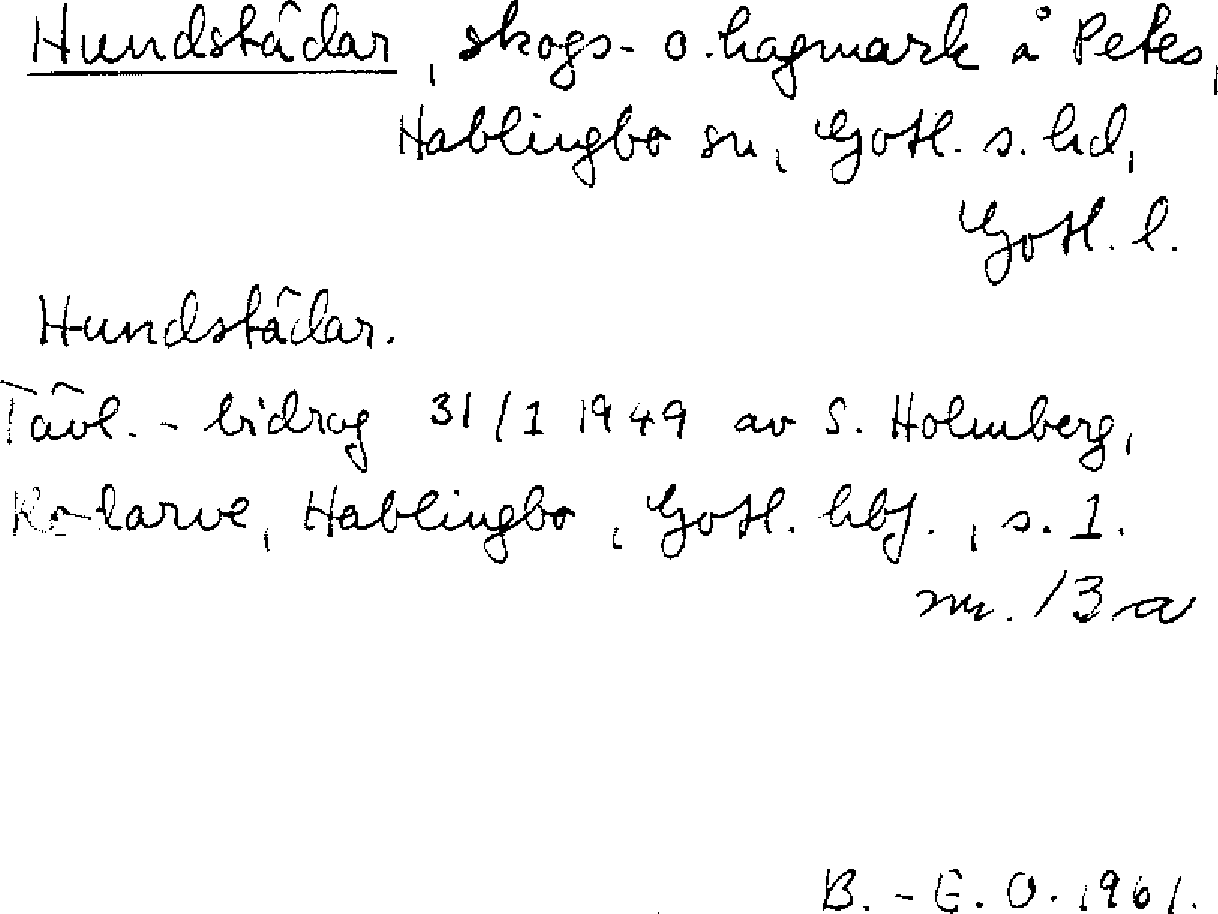 Hundstädar, skogs- o. hagmark å Petes,
Hablingbo sn, Gotl. s. hd,
Gotl. l.
Hundstädar.
Tävl. - bidrag 31/1 1949 av S. Holmberg,
Hablingbo, Gotl. hbf., s. 1.
nr. 13 a
B. - E. O. 1961.